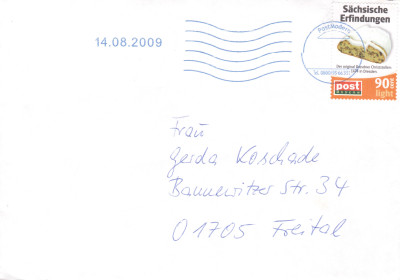 Sächsische
Erfindungen
PostModern
14.08.2009
Der original Dresdner Christstollen
1474 in Dresden
post
MODERN
90
light
Frau
Gerda Koschade
Bannewitzer Str. 34
01705 Freital